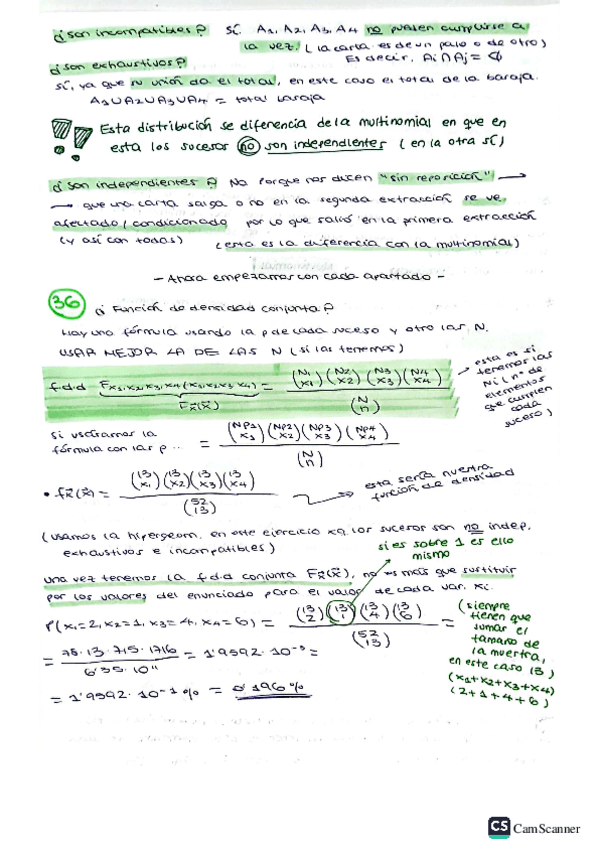 ¿Son incompatibles? Sí. A1, A2, A3, A4 no pueden cumplirse a
la vez. (la carta es de un palo o de otro)
Es decir, Ai∩Aj = ϕ
¿Son exhaustivos?
Sí, ya que su unión da el total, en este caso el total de la baraja.
A1∪A2∪A3∪A4 = total baraja
Esta distribución se diferencia de la multinomial en que en
esta los sucesos no son independientes (en la otra sí)
¿Son independientes? No porque nos dicen "sin reposición" →
→ que una carta salga o no en la segunda extracción se ve
afectado/condicionado por lo que salió en la primera extracción
(y así con todas) (esta es la diferencia con la multinomial)
- Ahora empezamos con cada apartado -
36 ¿Función de densidad conjunta?
Hay una fórmula usando la p de cada suceso y otro las N.
USAR MEJOR LA DE LAS N (si las tenemos)
f.d.d Fx1,x2,x3,x4(x1,x2,x3,x4) = (N1 x1)(N2 x2)(N3 x3)(N4 x4) / (N n)
Fx̄(x̄)
→ esta es si tenemos las Ni (nº de elementos que cumplen cada suceso)
Si usáramos la fórmula con las p.. = (Np1 x1)(Np2 x2)(Np3 x3)(Np4 x4) / (N n)
• fx̄(x̄) = (13 x1)(13 x2)(13 x3)(13 x4) / (52 13) → esta sería nuestra función de densidad
(usamos la hipergeom. en este ejercicio xq los sucesos son no indep,
exhaustivos e incompatibles)
si es sobre 1 es ello mismo
una vez tenemos la f.d.d conjunta Fx̄(x̄), no es más que sustituir
por los valores del enunciado para el valor de cada var. xi.
P(x1=2, x2=1, x3=4, x4=6) = (13 2)(13 1)(13 4)(13 6) / (52 13) =
= 78·13·715·1716 / 6'35·10¹¹ = 1'9592·10⁻³ =
= 1'9592·10⁻¹ % = 0'196%
(siempre
tienen que
sumar el
tamaño de
la muestra,
en este caso 13)
(x1+x2+x3+x4)
(2+1+4+6)
CS CamScanner